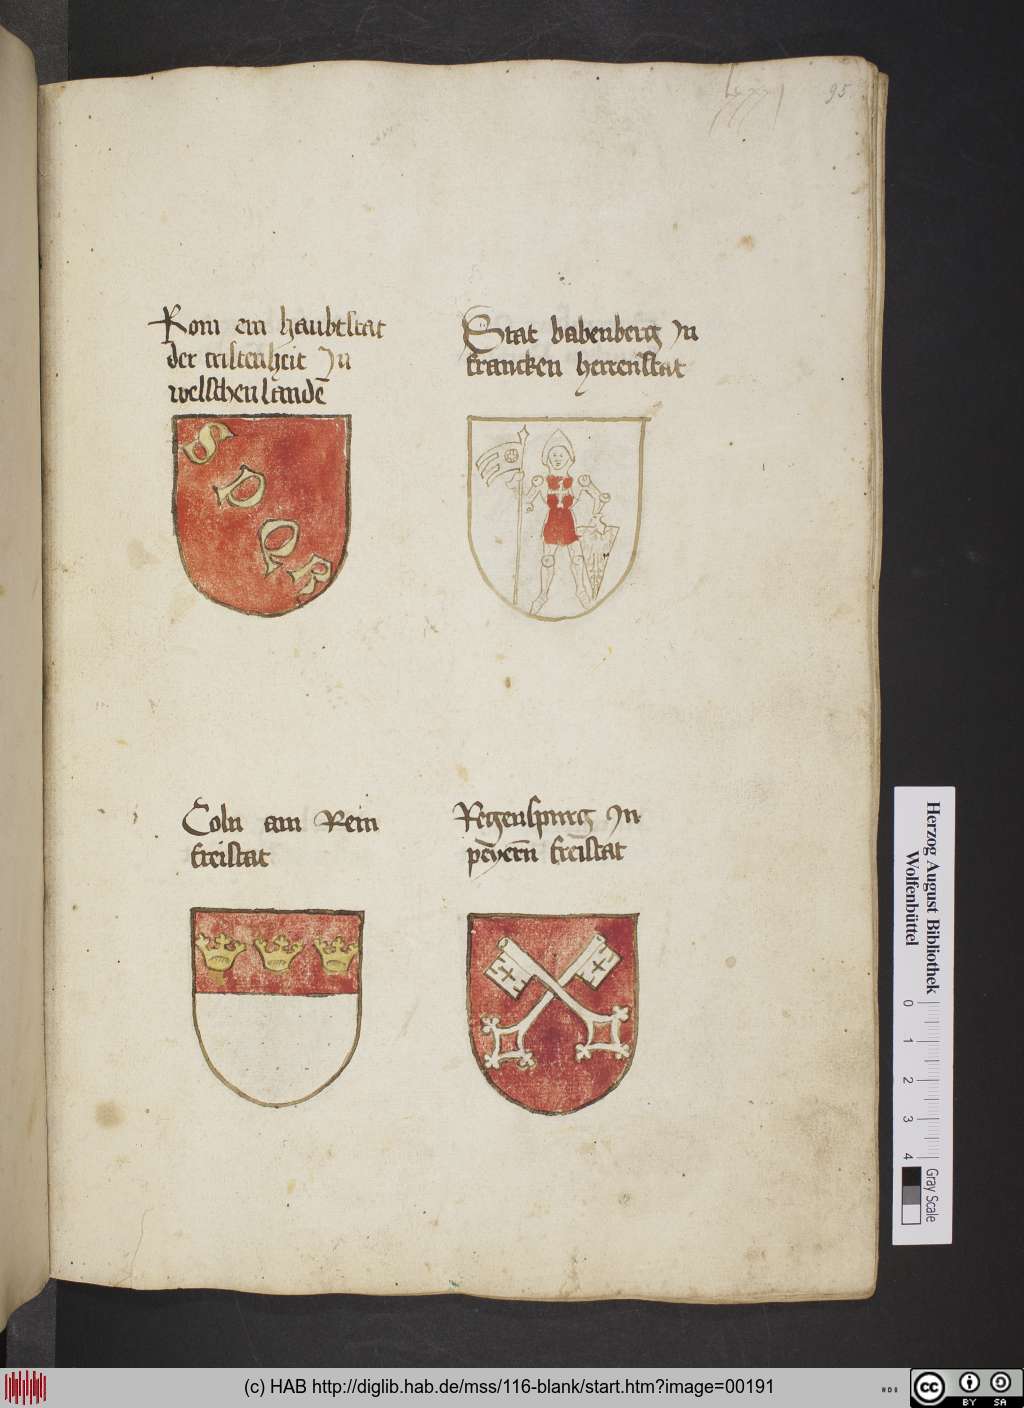 95
Rom ein haubtstat
der cristenheit In
welschen landē
S P Q R
Stat babenberg In
francken herrenstat
Coln am Rein
freistat
Regenspurg In
peyern freistat
Herzog August Bibliothek
Wolfenbüttel
0 1 2 3 4
Gray Scale
(c) HAB http://diglib.hab.de/mss/116-blank/start.htm?image=00191
cc BY SA